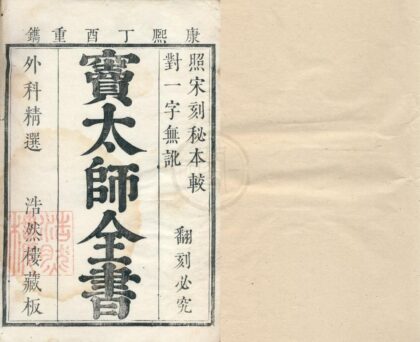 康熙丁酉重鐫
照宋刻秘本較
對一字無訛
翻刻必究
竇太師全書
外科精選
浩然樓藏板